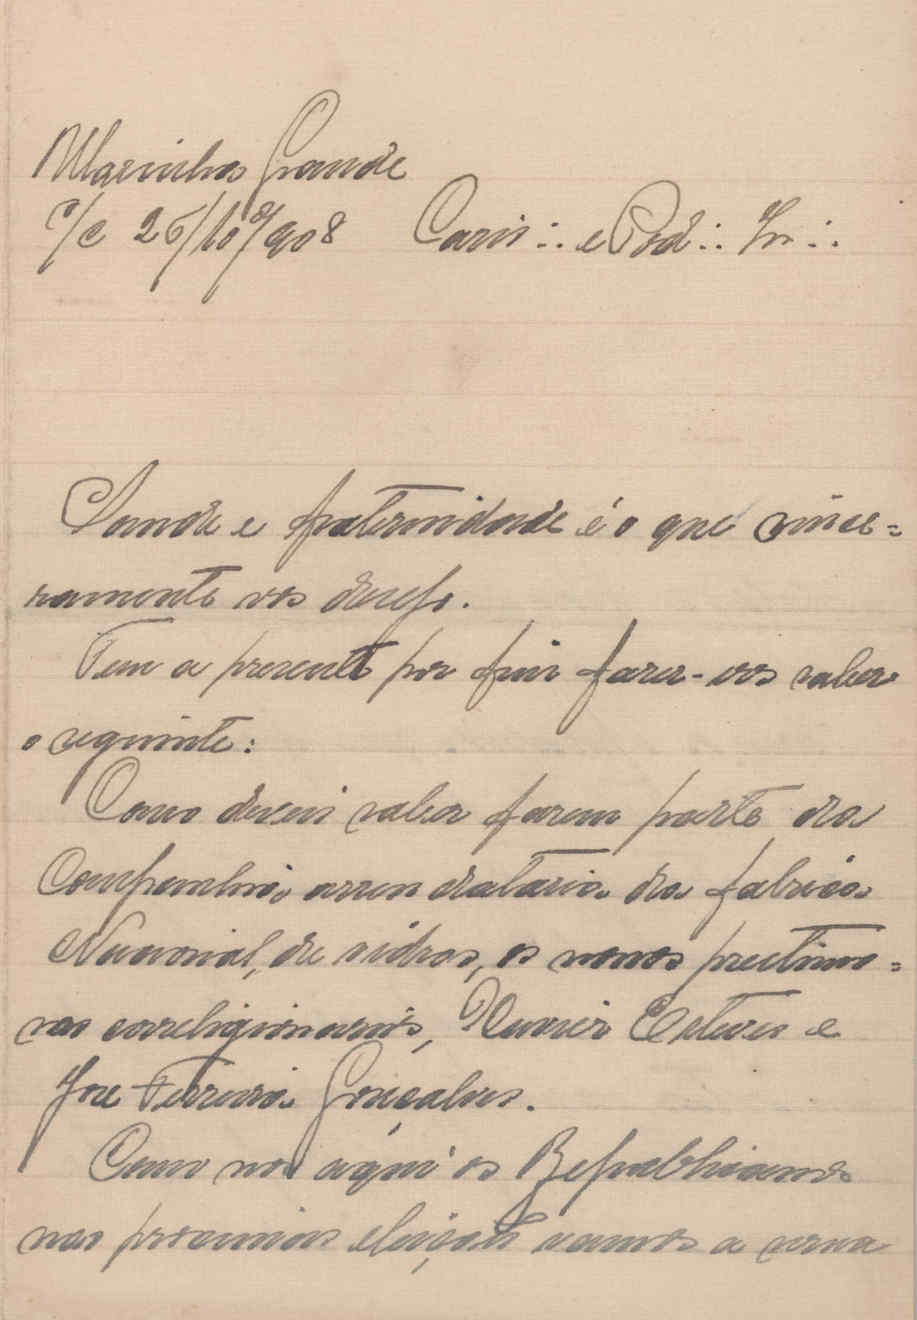 Marinha Grande
S/C 26/10º/908 Caris∴ e Pod∴ Ir∴
Saude e fraternidade é o que since=
ramente vos desejo.
Tem a presente por fim fazer-vos saber
o seguinte:
Como deveis saber fazem parte da
Companhia arrendataria da fabrica
Nacional, de vidros, os nossos prestimo=
sos correligionarios, Xavier Esteves e
Jose Ferreira Gonçalves.
Como nos aqui os Republicanos
nas proximas eleições vamos a urna